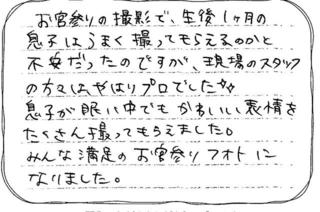 お宮参りの撮影で、生後1ヶ月の
息子はうまく撮ってもらえるのかと
不安だったのですが、現場のスタッフ
の方々はやはりプロでした✨
息子が眠い中でもかわいい表情を
たくさん撮ってもらえました。
みんな満足のお宮参りフォトに
なりました。